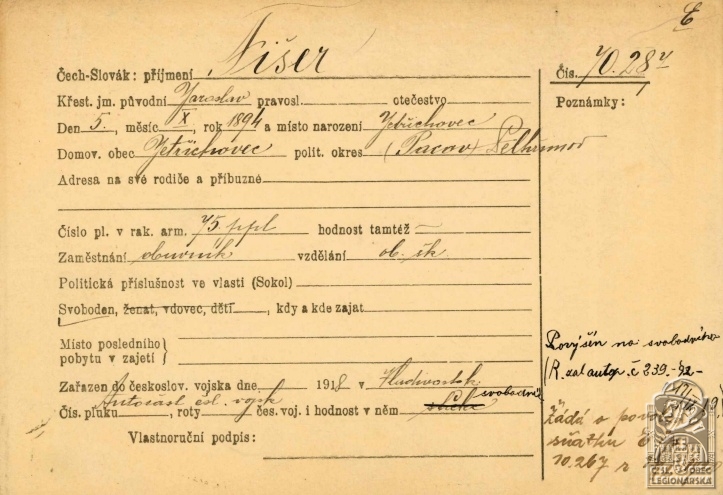 Č
Čech-Slovák: příjmení Fišer
Čís. 70.284
Křest. jm. původní Jaroslav pravosl. otečestvo
Poznámky:
Den 5., měsíc X, rok 1894 a místo narození Jetřichovec
Domov. obec Jetřichovec polit. okres (Pacov) Pelhřimov
Adresa na své rodiče a příbuzné
Číslo pl. v rak. arm. 75. ppl hodnost tamtéž –
Zaměstnání obuvník vzdělání ob. šk
Politická příslušnost ve vlasti (Sokol)
Svoboden, ženat, vdovec, dětí , kdy a kde zajat
Místo posledního
pobytu v zajetí
Povýšen na svobodníka
(R. zal autop. č 239.-92-
Zařazen do českoslov. vojska dne 1918 v Vladivostok
svobodník
Autočást čsl. vojsk
Čís. pluku , roty čes. voj. i hodnost v něm
Žádá o
sňatku
10.267
Vlastnoruční podpis:
ČSL. OBEC
LEGIONÁŘSKÁ